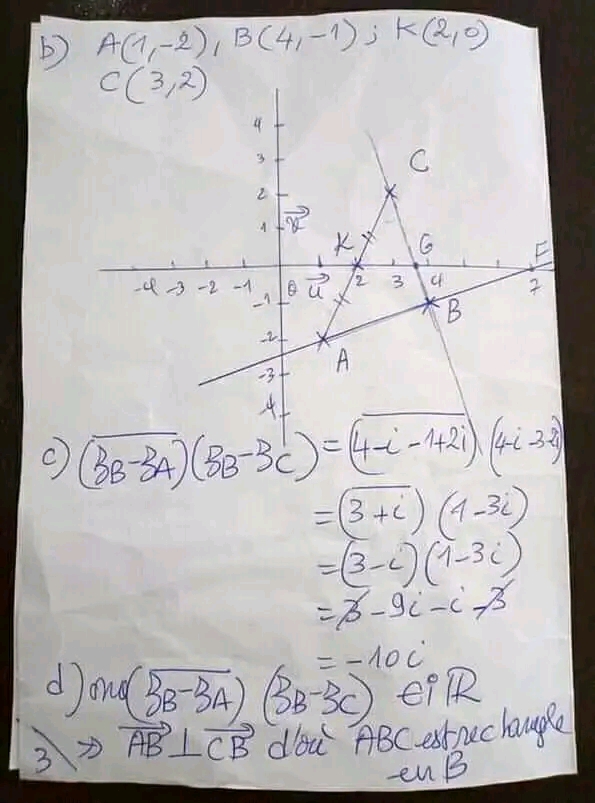 b) A(1,-2), B(4,-1) ; K(2,0)
C(3,2)
4
3
C
2
1 v⃗
K G E
-4 -3 -2 -1 0 u⃗ 2 3 4 7
-1
B
-2
A
-3
-4
c) (\overline{z_B-z_A})(z_B-z_C) = (\overline{4-i-1+2i})(4-i-3-2i)
= (\overline{3+i})(1-3i)
= (3-i)(1-3i)
= 3-9i-i-3
= -10i
d) (\overline{z_B-z_A})(z_B-z_C) ∈ iℝ
3 ⇒ \overrightarrow{AB} ⊥ \overrightarrow{CB} d'où ABC est rectangle
en B